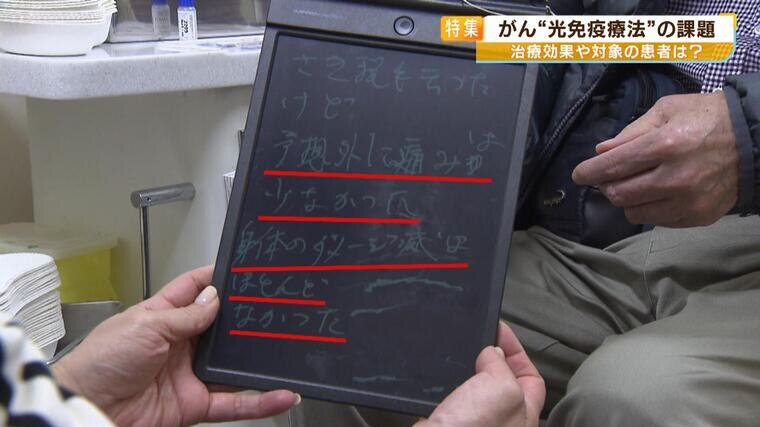 特集
がん“光免疫療法”の課題
治療効果や対象の患者は?
さき程も言った
けど
予想外に痛みは
少なかった
身体のダメージ感は
ほとんど
なかった